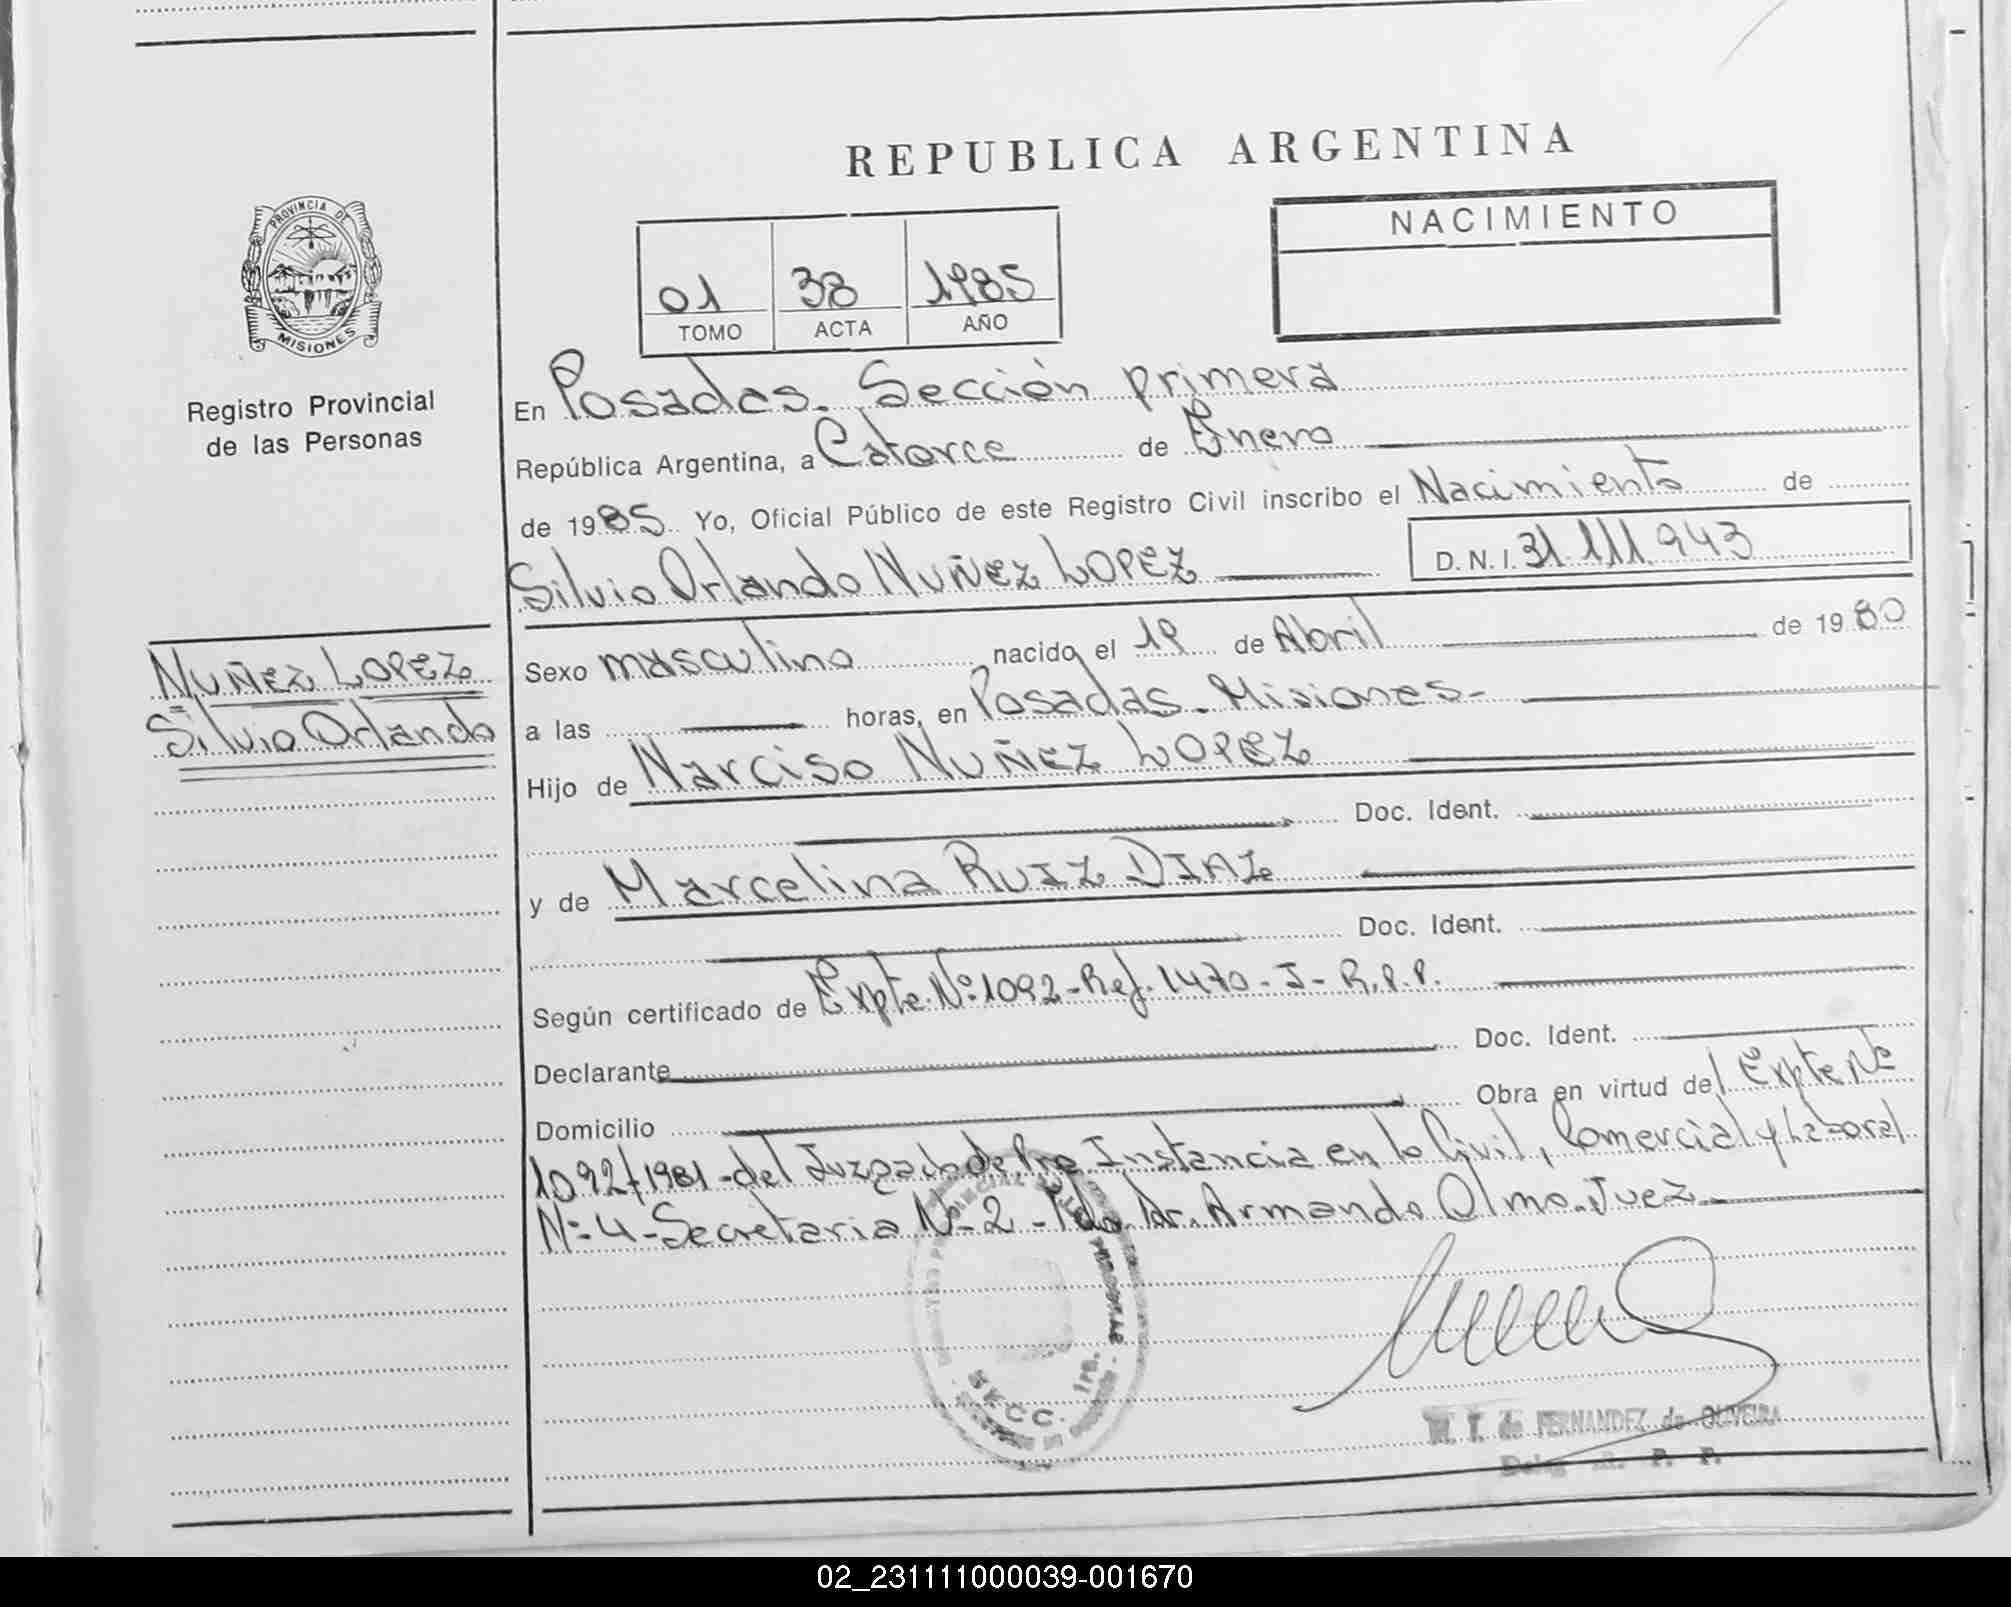 REPUBLICA ARGENTINA
PROVINCIA DE
MISIONES
Registro Provincial
de las Personas
NACIMIENTO
01 38 1985
TOMO ACTA AÑO
En Posadas. Sección primera
República Argentina, a Catorce de Enero
de 1985 Yo, Oficial Público de este Registro Civil inscribo el Nacimiento de
Silvio Orlando NUÑEZ LOPEZ D.N.I. 31.111.943
NUÑEZ LOPEZ
Silvio Orlando
Sexo masculino nacido el 19 de Abril de 1980
a las horas, en Posadas. Misiones-
Hijo de Narciso NUÑEZ LOPEZ
Doc. Ident.
y de Marcelina RUIZ DIAZ
Doc. Ident.
Según certificado de Expte. Nº: 1092-Ref. 1470-J-R.P.P.
Declarante Doc. Ident.
Domicilio Obra en virtud del Expte Nº
1092/1981-del Juzgado de Pra Instancia en lo Civil, Comercial y Laboral
Nº 4-Secretaria Nº-2-Fdo. Dr. Armando Olmo. Juez
PERSONAS
SECC. 1ra.
M. T. de FERNANDEZ de OLIVEIRA
R. P. P.
02_231111000039-001670